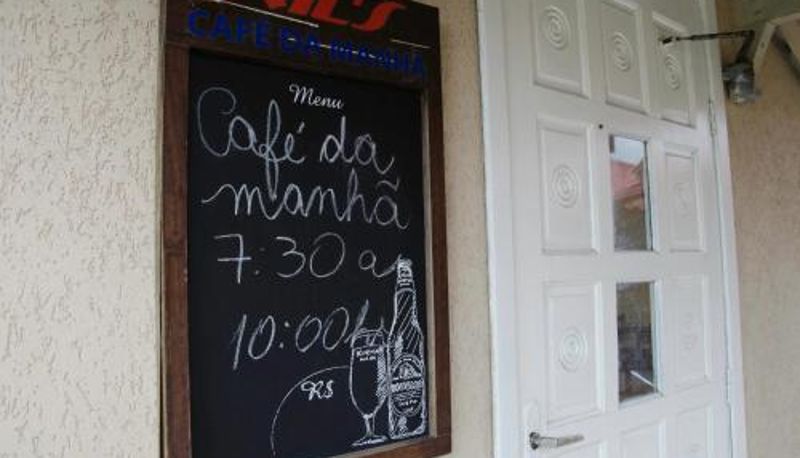 CAFE DA MANHÃ
Menu
Café da
manhã
7:30 a
10:00h
R$